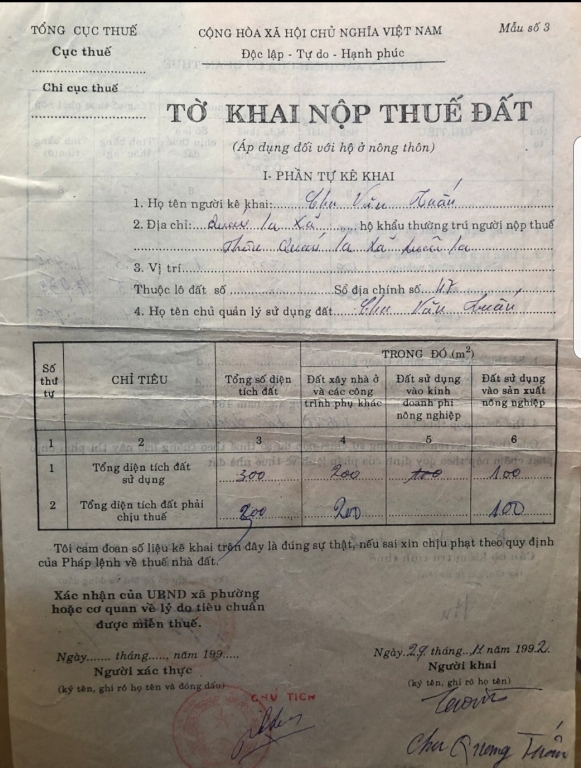 TỔNG CỤC THUẾ
Cục thuế
Chi cục thuế
CỘNG HÒA XÃ HỘI CHỦ NGHĨA VIỆT NAM
Độc lập - Tự do - Hạnh phúc
Mẫu số 3
TỜ KHAI NỘP THUẾ ĐẤT
(Áp dụng đối với hộ ở nông thôn)
I- PHẦN TỰ KÊ KHAI
1. Họ tên người kê khai: Chu Văn Tuấn
2. Địa chỉ: Quán la Xã hộ khẩu thường trú người nộp thuế
Thôn Quán la Xã Xuân la
3. Vị trí
Thuộc lô đất số Số địa chính số
4. Họ tên chủ quản lý sử dụng đất Chu Văn Tuấn
Số thứ tự CHỈ TIÊU Tổng số diện tích đất TRONG ĐÓ (m²)
Đất xây nhà ở và các công trình phụ khác Đất sử dụng vào kinh doanh phi nông nghiệp Đất sử dụng vào sản xuất nông nghiệp
1 2 3 4 5 6
1 Tổng diện tích đất sử dụng 300 200 100 100
2 Tổng diện tích đất phải chịu thuế 200 200 100
Tôi cam đoan số liệu kê khai trên đây là đúng sự thật, nếu sai xin chịu phạt theo quy định
của Pháp lệnh về thuế nhà đất.
Xác nhận của UBND xã phường
hoặc cơ quan về lý do tiêu chuẩn
được miễn thuế.
Ngày...... tháng....., năm 199....
Người xác thực
(ký tên, ghi rõ họ tên và đóng dấu)
CHỦ TỊCH
Ngày 29 tháng 11 năm 1992
Người khai
(ký tên, ghi rõ họ tên)
Chu Quang Tuấn